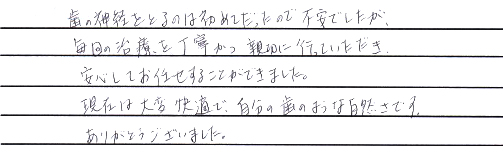 歯の神経をとるのは初めてだったので不安でしたが、
毎回の治療を丁寧かつ親切に行っていただき
安心してお任せすることができました。
現在は大変快適で、自分の歯のような自然さです。
ありがとうございました。